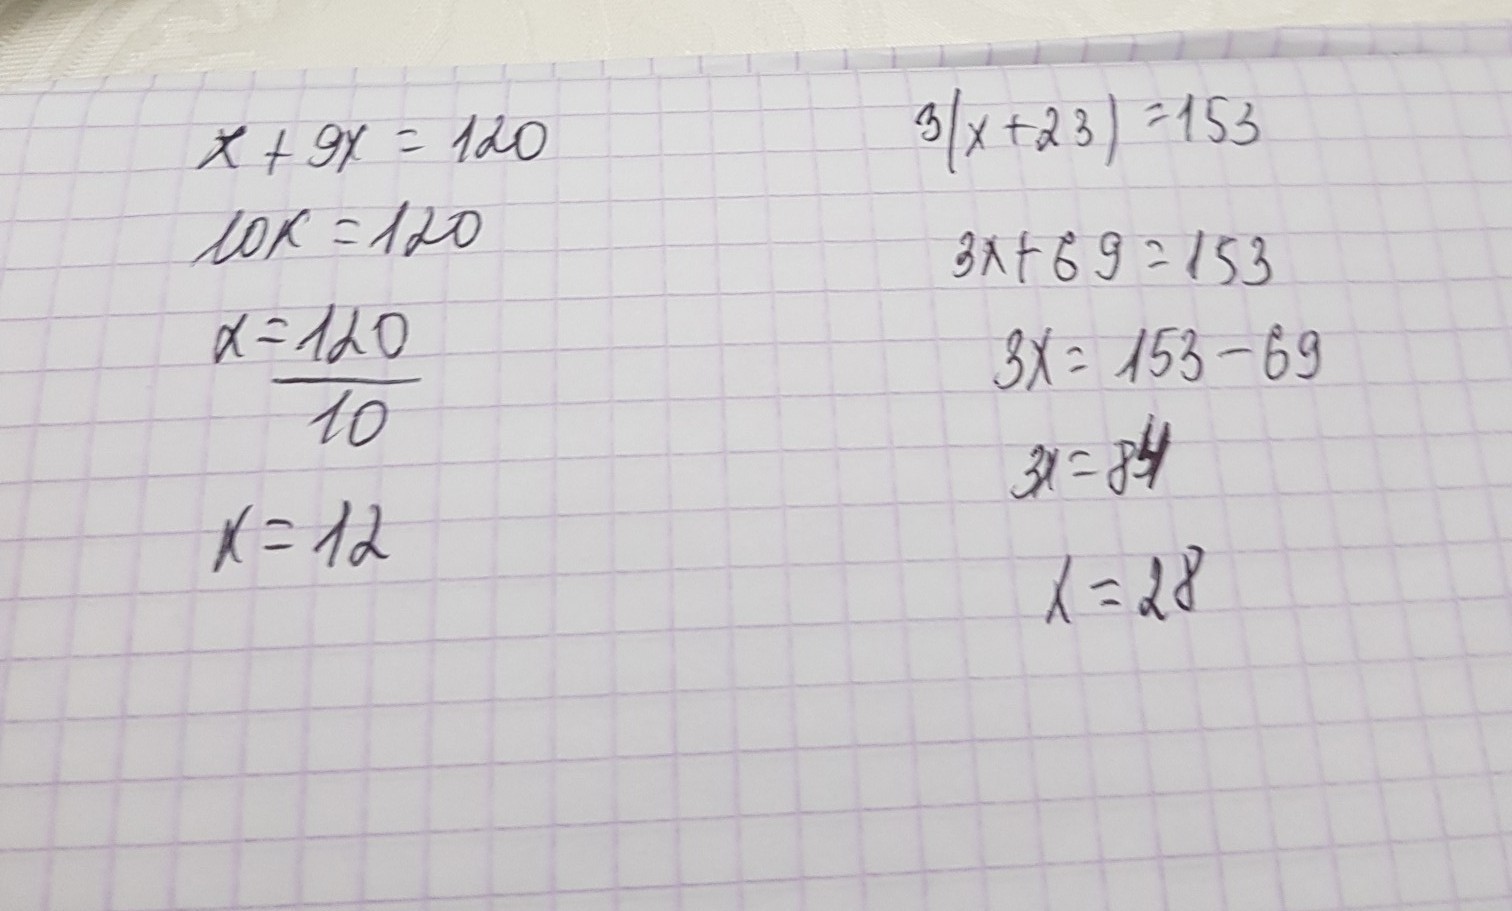 x + 9x = 120
10x = 120
x = 120
10
x = 12
3(x+23) = 153
3x+69 = 153
3x = 153 - 69
3x = 84
x = 28